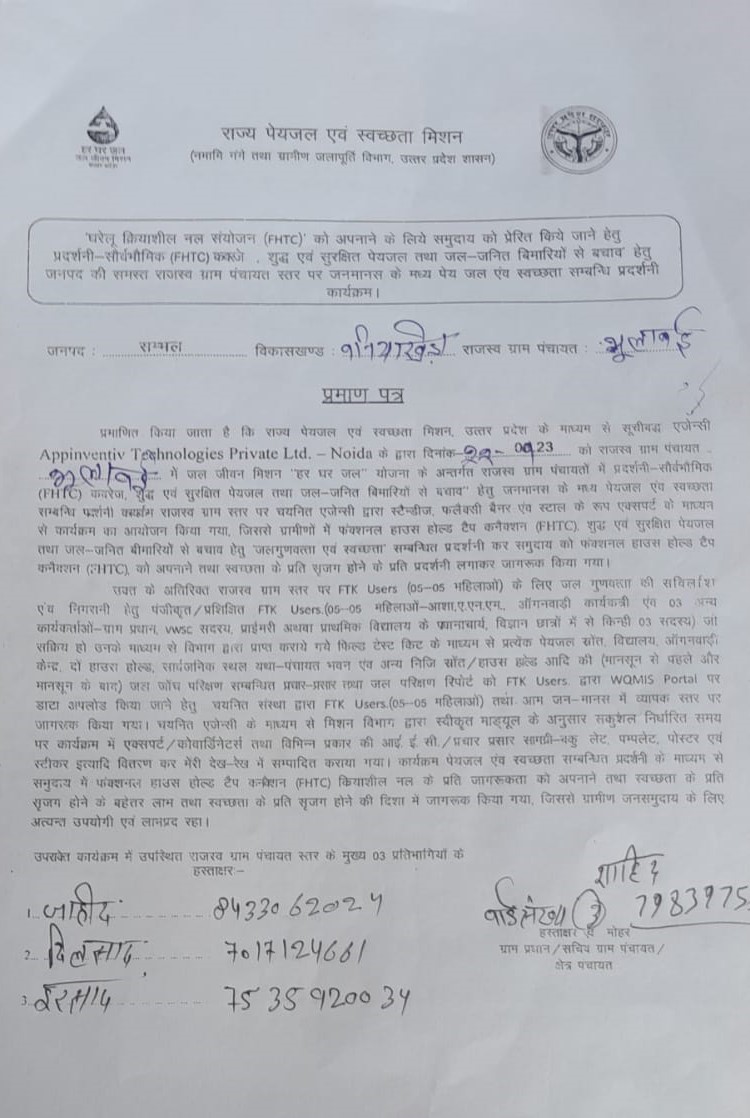 हर घर जल
जल जीवन मिशन
राज्य पेयजल एवं स्वच्छता मिशन
(नमामि गंगे तथा ग्रामीण जलापूर्ति विभाग, उत्तर प्रदेश शासन)
'घरेलू क्रियाशील नल संयोजन (FHTC)' को अपनाने के लिये समुदाय को प्रेरित किये जाने हेतु
प्रदर्शनी–सौर्वभौमिक (FHTC) , शुद्ध एवं सुरक्षित पेयजल तथा जल–जनित बिमारियों से बचाव' हेतु
जनपद की समस्त राजस्व ग्राम पंचायत स्तर पर जनमानस के मध्य पेय जल एंव स्वच्छता सम्बन्धि प्रदर्शनी
कार्यक्रम।
जनपद : सम्भल विकासखण्ड : बनियाखेड़ा राजस्व ग्राम पंचायत :
प्रमाण पत्र
प्रमाणित किया जाता है कि राज्य पेयजल एवं स्वच्छता मिशन, उत्तर प्रदेश के माध्यम से सूचीबद्ध एजेन्सी
Appinventiv Technologies Private Ltd. – Noida के द्वारा दिनांक- को राजस्व ग्राम पंचायत
में जल जीवन मिशन "हर घर जल" योजना के अन्तर्गत राजस्व ग्राम पंचायतों में प्रदर्शनी–सौर्वभौमिक
(FHTC) कवरेज, शुद्ध एवं सुरक्षित पेयजल तथा जल-जनित बिमारियों से बचाव" हेतु जनमानस के मध्य पेयजल एंव स्वच्छता
सम्बन्धि राजस्व ग्राम स्तर पर चयनित एजेन्सी द्वारा स्टैन्डीज, फलैक्सी बैनर एंव स्टाल के रूप एक्सपर्ट के माध्यम
से कार्यक्रम का आयोजन किया गया, जिससे ग्रामीणों में फंक्शनल हाउस होल्ड टैप कनैक्शन (FHTC), शुद्ध एवं सुरक्षित पेयजल
तथा जल-जनित बीमारियों से बचाव हेतु 'जलगुणवत्ता एवं स्वच्छता' सम्बन्धित प्रदर्शनी कर समुदाय को फंक्शनल हाउस होल्ड टैप
कनैक्शन (FHTC), को अपनाने तथा स्वच्छता के प्रति सृजग होने के प्रति प्रदर्शनी लगाकर जागरूक किया गया।
उक्त के अतिरिक्त राजस्व ग्राम स्तर पर FTK Users (05–05 महिलाओं) के लिए जल गुणवत्ता की
एंव निगरानी हेतु पंजीकृत/प्रशिक्षित FTK Users.(05–05 महिलाओं–आशा,ए.एन.एम., ऑगनवाड़ी कार्यकत्री एंव 03 अन्य
कार्यकर्ताओं–ग्राम प्रधान, vwsc सदस्य, प्राईमरी अथवा प्राथमिक विद्यालय के प्रधानाचार्य, विज्ञान छात्रों में से किन्ही 03 सदस्य) जो
सक्रिय हो उनके माध्यम से विभाग द्वारा प्राप्त कराये गये फिल्ड टेस्ट किट के माध्यम से प्रत्येक पेयजल स्रोत, विद्यालय, ऑगनवाड़ी
केन्द्र, दो हाउस होल्ड, सार्वजनिक स्थल यथा-पंचायत भवन एंव अन्य निजि स्रोत/हाउस होल्ड आदि की (मानसून से पहले और
मानसून के बाद) जल जाँच परिक्षण सम्बन्धित प्रचार-प्रसार तथा जल परिक्षण रिपोर्ट को FTK Users. द्वारा WQMIS Portal पर
डाटा अपलोड किया जाने हेतु चयनित संस्था द्वारा FTK Users.(05–05 महिलाओं) तथा आम जन-मानस में व्यापक स्तर पर
जागरूक किया गया। चयनित एजेन्सी के माध्यम से मिशन विभाग द्वारा स्वीकृत माड्यूल के अनुसार सकुशल निर्धारित समय
पर कार्यक्रम में एक्सपर्ट/कोवार्डिनेटर्स तथा विभिन्न प्रकार की आई. ई. सी./प्रचार प्रसार सामग्री-बकु लेट, पम्पलेट, पोस्टर एवं
स्टीकर इत्यादि वितरण कर मेरी देख-रेख में सम्पादित कराया गया। कार्यक्रम पेयजल एंव स्वच्छता सम्बन्धित प्रदर्शनी के माध्यम से
समुदाय में फंक्शनल हाउस होल्ड टैप कनैक्शन (FHTC) कियाशील नल के प्रति जागरूकता को अपनाने तथा स्वच्छता के प्रति
सृजग होने के बहेतर लाभ तथा स्वच्छता के प्रति सृजग होने की दिशा में जागरूक किया गया, जिससे ग्रामीण जनसमुदाय के लिए
अत्यन्त उपयोगी एवं लाभप्रद रहा।
उपरोक्त कार्यक्रम में उपस्थित राजस्व ग्राम पंचायत स्तर के मुख्य 03 प्रतिभागियों के
हस्ताक्षर:–
शाहिद
1. जाहीद 8433062024
वार्ड संख्या (3) 7983975
हस्ताक्षर एंव मोहर
2. दिलसाद 7017124661
ग्राम प्रधान/सचिव ग्राम पंचायत/
क्षेत्र पंचायत
3. 7535920034